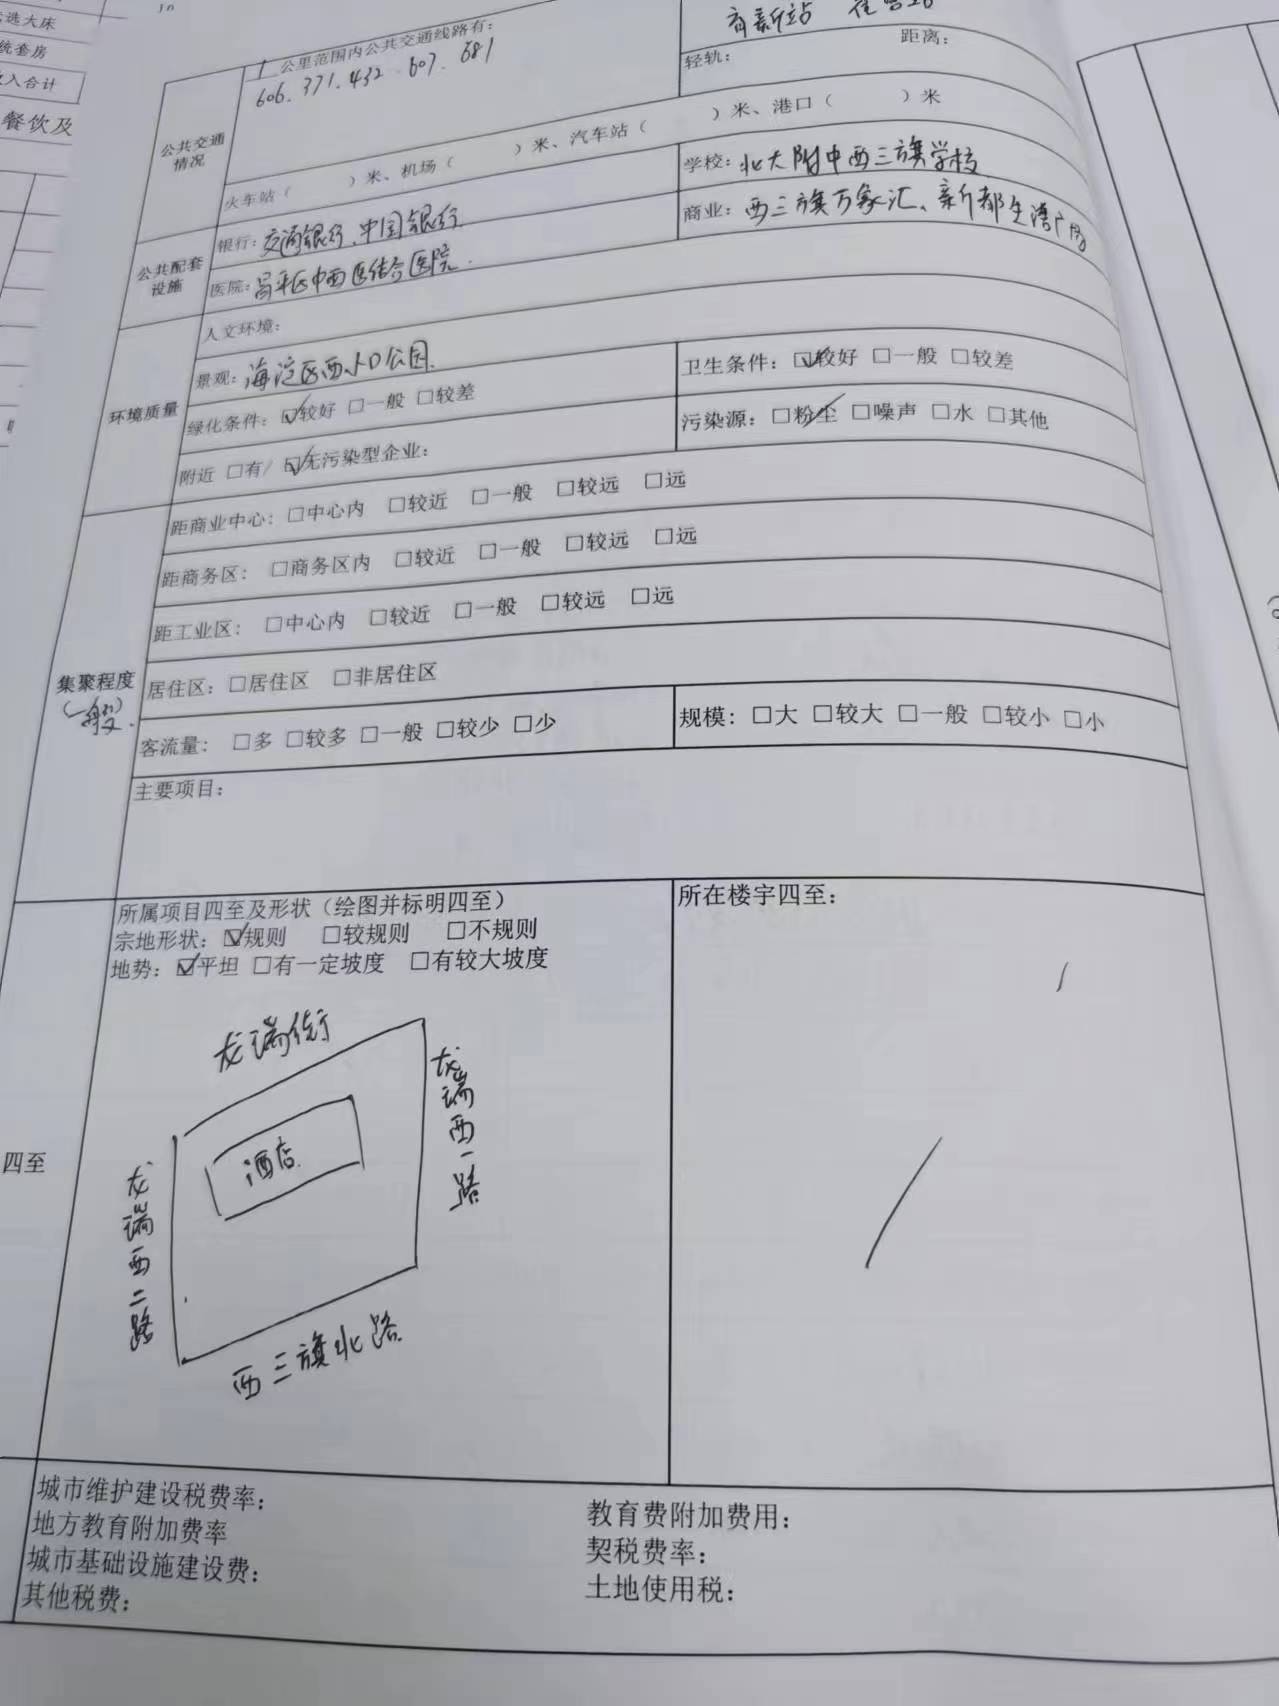 选大床
统套房
入合计
餐饮及
公共交通
情况
1 公里范围内公共交通线路有:
606. 371. 432. 607. 681
育新站
轻轨: 距离:
火车站 ( ) 米、机场 ( ) 米、汽车站 ( ) 米、港口 ( ) 米
公共配套
设施
银行: 交通银行、中国银行.
学校: 北大附中西三旗学校
医院: 昌平区中西医结合医院.
商业: 西三旗万家汇、新都生活广场
环境质量
人文环境:
景观: 海淀区西小口公园.
绿化条件: ☑较好 □一般 □较差
卫生条件: ☑较好 □一般 □较差
附近 □有/ ☑无污染型企业:
污染源: □粉尘 □噪声 □水 □其他
集聚程度
(一般).
距商业中心: □中心内 □较近 □一般 □较远 □远
距商务区: □商务区内 □较近 □一般 □较远 □远
距工业区: □中心内 □较近 □一般 □较远 □远
居住区: □居住区 □非居住区
客流量: □多 □较多 □一般 □较少 □少
规模: □大 □较大 □一般 □较小 □小
主要项目:
四至
所属项目四至及形状 (绘图并标明四至)
宗地形状: ☑规则 □较规则 □不规则
地势: ☑平坦 □有一定坡度 □有较大坡度
所在楼宇四至:
龙瑞街
龙瑞西一路
酒店
龙瑞西二路
西三旗北路
城市维护建设税费率:
地方教育附加费率
城市基础设施建设费:
其他税费:
教育费附加费用:
契税费率:
土地使用税: